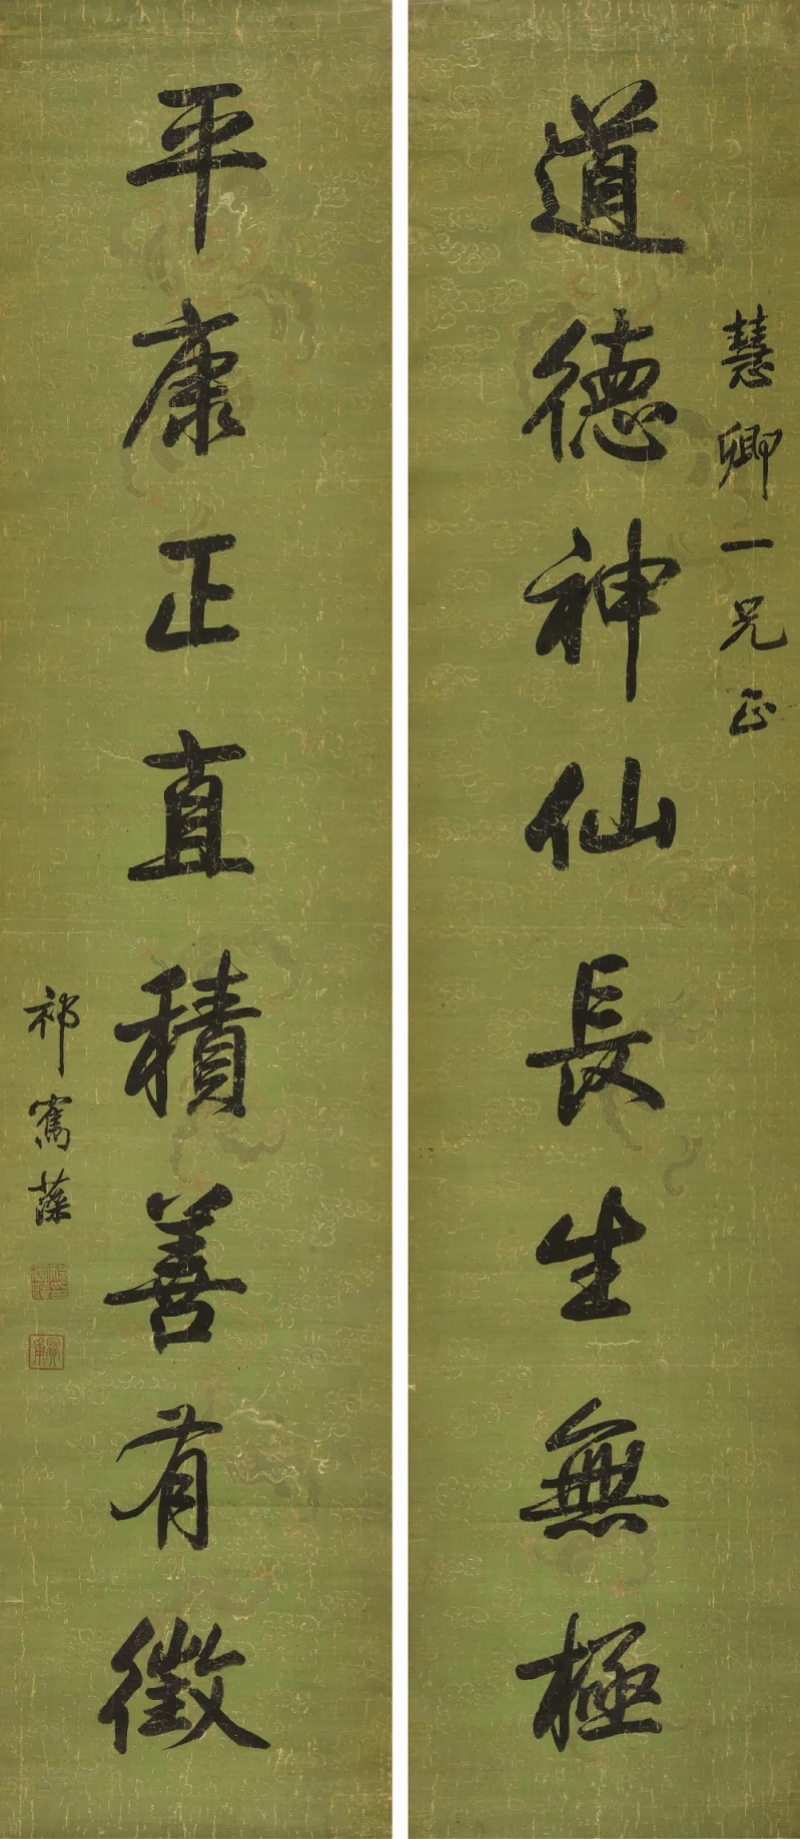 道德神仙長生無極
慧卿一兄正
平康正直積善有徵
祁寯藻